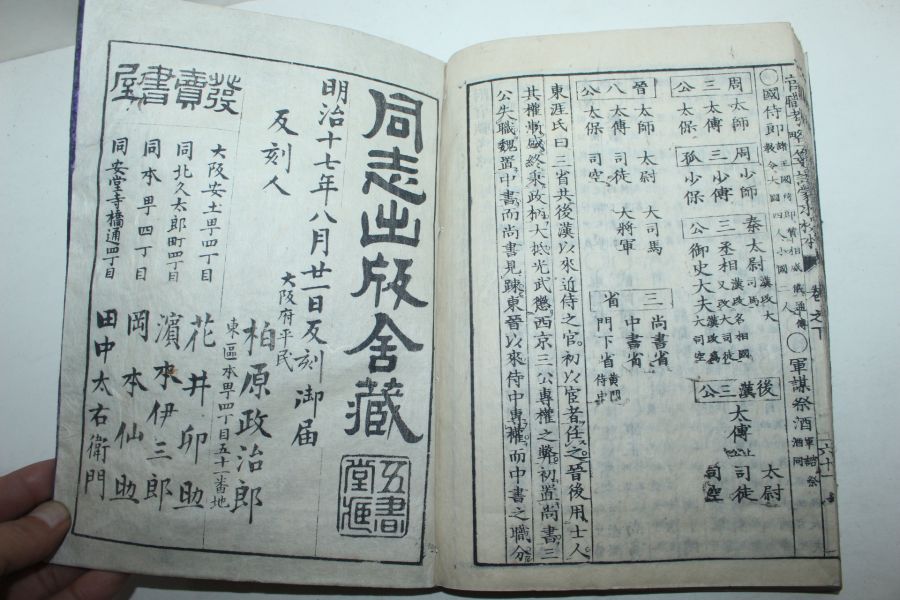 卷之下
○國侍郎
○軍謀祭酒
周三公
太師
太傅
太保
周三孤
少師
少傅
少保
秦三公
太尉 漢改大司馬
丞相 又改大司徒 漢改名相國
御史大夫 漢改為大司空
後漢三公
太尉
大傅
司徒
司空
晉八公
太師
太傅
太保
太尉
司徒
司空
大司馬
大將軍
三省
尚書省
中書省
門下省
東涯氏曰三省共後漢以來近侍之官初以宦者任之晉後用士人
其權漸盛終秉政柄大抵光武懲西京三公專權之弊初置尚書三
公失職魏置中書而尚書見踈東晉以來侍中專權而中書之職分
同志出版舍藏
五書堂
明治十七年八月廿一日反刻御届
大阪府平民
反刻人 柏原政治郎
東區本町四丁目五十一番地
發賣書屋
大阪安土町四丁目 花井卯助
同北久太郎町四丁目 濱本伊三郎
同本町四丁目 岡本仙助
同安堂寺橋通四丁目 田中太右衛門